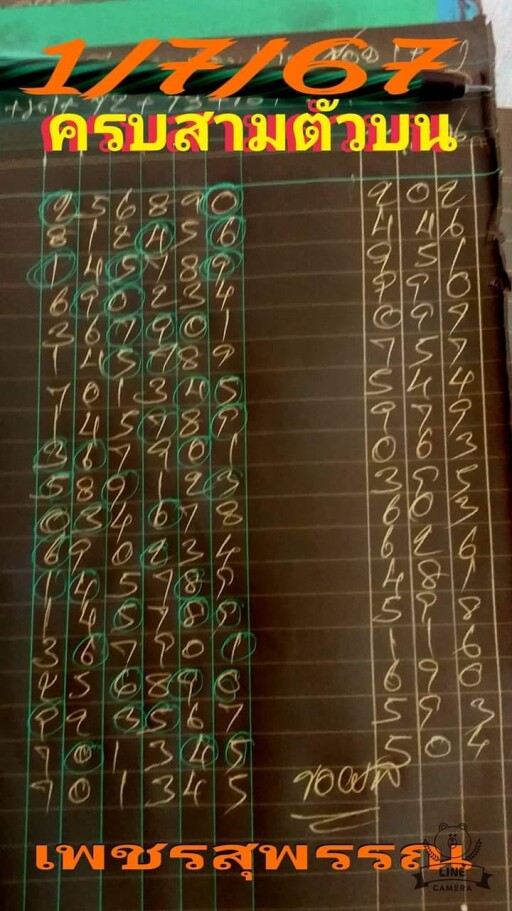 1/7/67
ครบสามตัวบน
2 5 6 8 9 0 9 0 2
8 1 2 4 5 6 4 4 6
1 4 5 7 8 9 9 5 1
6 9 0 2 3 4 9 9 0
3 6 7 9 0 1 0 9 9
1 4 5 7 8 9 7 5 7
7 0 1 3 4 5 5 4 4
1 4 5 7 8 9 9 7 9
3 6 7 9 0 1 0 6 3
5 8 9 1 2 3 3 9 5
0 3 4 6 7 8 6 0 3
6 9 0 2 3 4 6 2 6
1 4 5 7 8 9 4 8 1
1 4 5 7 8 9 5 9 8
3 6 7 9 0 1 1 1 6
2 5 6 8 9 0 6 9 0
9 2 3 5 6 7 5 9 3
7 0 1 3 4 5 5 0 4
7 0 1 3 4 5
เพชรสุพรรณ
LINE
CAMERA